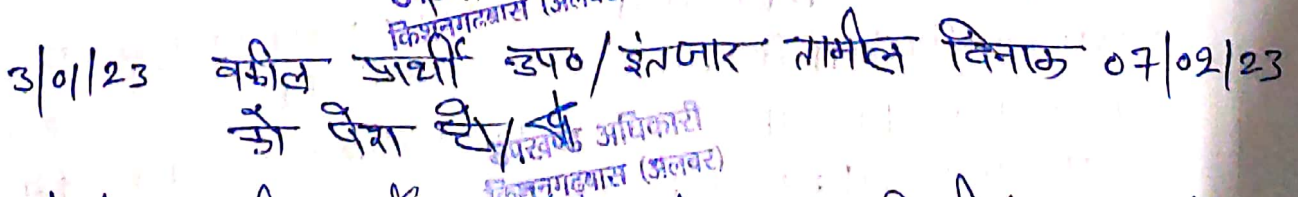 किशनगढबास (अलवर)
3/01/23 वकील प्रार्थी उप०/इंतजार तामील दिनांक 07/02/23
को पेश हो/
उपखण्ड अधिकारी
किशनगढबास (अलवर)